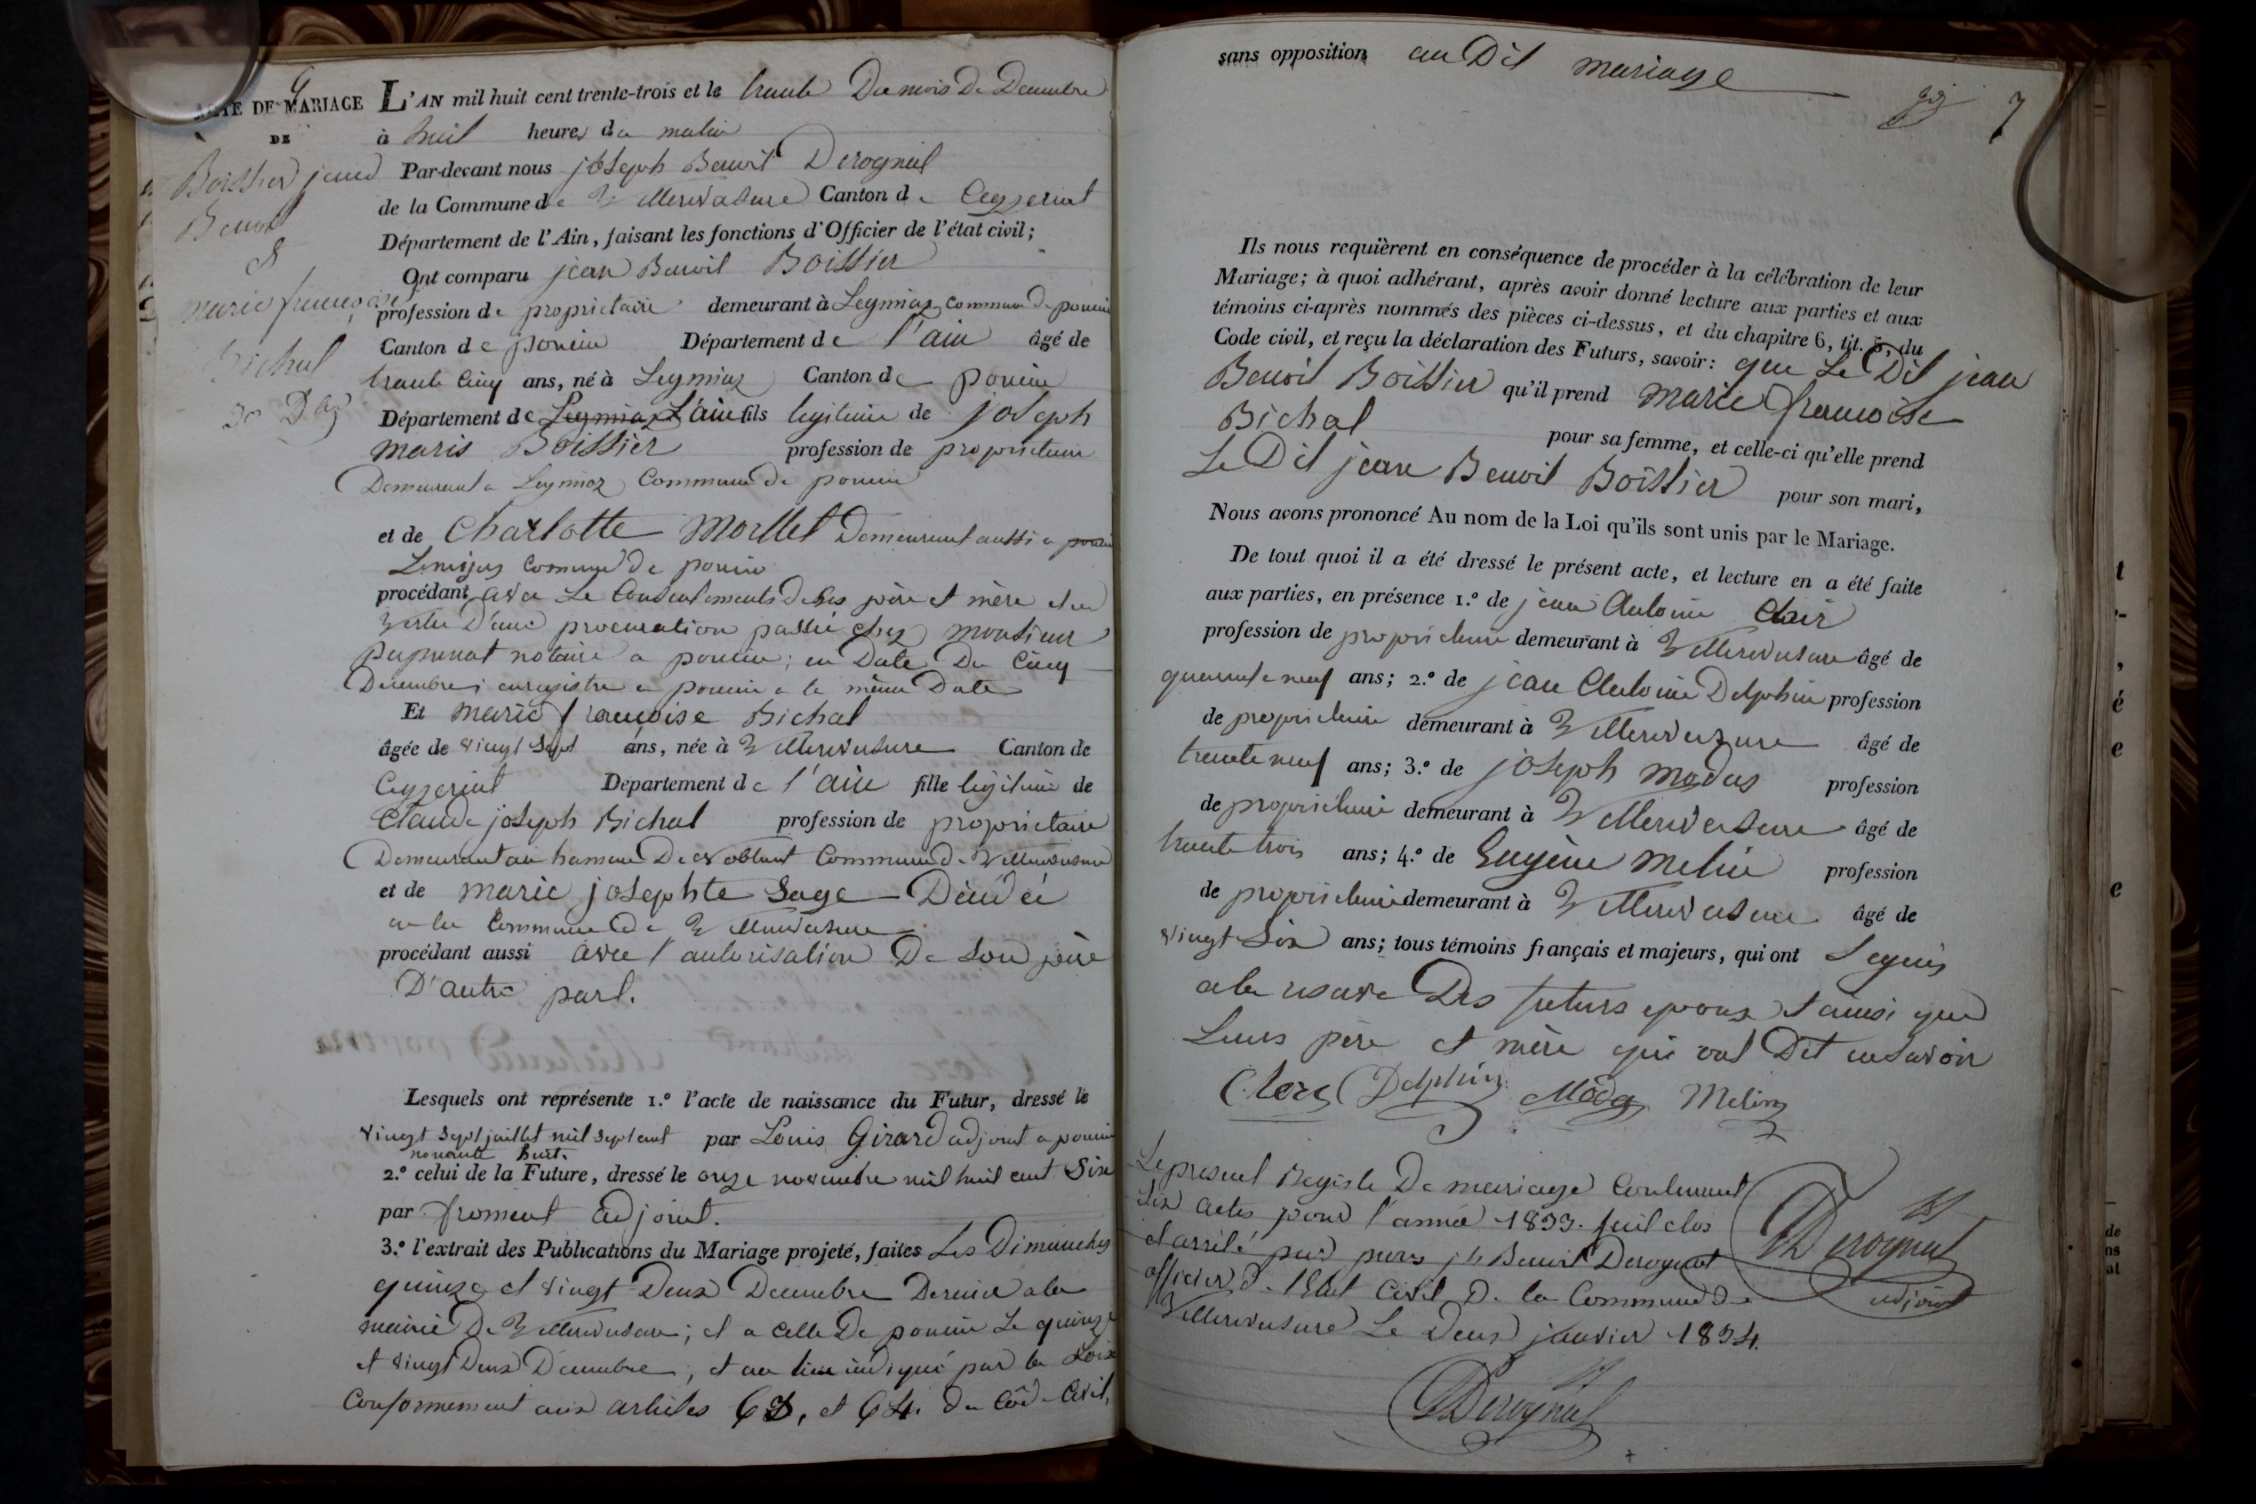 9
ACTE DE MARIAGE
DE
Boissier jean
Benoit
&
marie françoise
Bichat
30 D.
L'AN mil huit cent trente-trois et le trente Du mois De Decembre
à huit heures du matin
Par-devant nous joseph Benoit Derognat
de la Commune de Villereversure Canton de Ceyzeriat
Département de l'Ain, faisant les fonctions d'Officier de l'état civil;
Ont comparu jean Benoit Boissier
profession de proprietaire demeurant à Leymiaz commune De poncin
Canton de poncin Département de l'ain âgé de
trente Cinq ans, né à Leymiaz Canton de poncin
Département de Leymiaz L'ain fils legitime de joseph
maris Boissier profession de proprietaire
Demeurant a Leymiaz Commune De poncin
et de Charlotte Moillet Demeurant aussi a poncin
Commune De poncin
procédant avec Le Consentements De ses père et mère et en
vertu D'une procuration passée chez monsieur
notaire a poncin; en Date Du Cinq
Decembre; enregistre a poncin a la même Date
Et marie françoise Bichat
âgée de vingt sept ans, née à Villereversure Canton de
Ceyzeriat Département de l'ain fille légitime de
Claude joseph Bichat profession de proprietaire
Demeurant au hameau De Commune De Villereversure
et de marie josephte Sage Décédée
en la Commune De Villereversure
procédant aussi avec l'autorisation De Son père
D'autre part.
Lesquels ont représente 1.º l'acte de naissance du Futur, dressé le
vingt sept juillet mil sept cent par Louis Girard adjoint a poncin
nonante huit.
2.º celui de la Future, dressé le onze novembre mil huit cent Six
par froment adjoint.
3.º l'extrait des Publications du Mariage projeté, faites Les Dimanches
quinze et vingt Deux Decembre Dernier a la
mairie De Villereversure; et a celle De poncin Le quinze
et vingt Deux Décembre; et au lieu indiqué par la Loix
Conformement aux articles 63, et 64. du Code Civil,
sans opposition au Dit mariage
7
Ils nous requièrent en conséquence de procéder à la célébration de leur
Mariage; à quoi adhérant, après avoir donné lecture aux parties et aux
témoins ci-après nommés des pièces ci-dessus, et du chapitre 6, tit. 5, du
Code civil, et reçu la déclaration des Futurs, savoir: que Le Dit jean
Benoit Boissier qu'il prend marie françoise
Bichat pour sa femme, et celle-ci qu'elle prend
Le Dit jean Benoit Boissier pour son mari,
Nous avons prononcé Au nom de la Loi qu'ils sont unis par le Mariage.
De tout quoi il a été dressé le présent acte, et lecture en a été faite
aux parties, en présence 1.º de jean Antoine Clair
profession de proprietaire demeurant à Villereversure âgé de
quarante neuf ans; 2.º de jean Antoine Delphin profession
de proprietaire demeurant à Villereversure âgé de
trente neuf ans; 3.º de joseph modas profession
de proprietaire demeurant à Villereversure âgé de
trente trois ans; 4.º de Eugène Melin profession
de proprietaire demeurant à Villereversure âgé de
vingt Six ans; tous témoins français et majeurs, qui ont Signés
Des futurs epoux et ainsi que
Leurs père et mère qui ont Dit
Clerc Delphin Moda Melin
Le present Registre De mariage Contenant
Six actes pour l'année 1833. fut clos
et arrêté par nous jh Benoit Derognat
officier De l'Etat Civil De la Commune De
Villereversure Le Deux janvier 1834.
Derognat
adjoint
Derognat